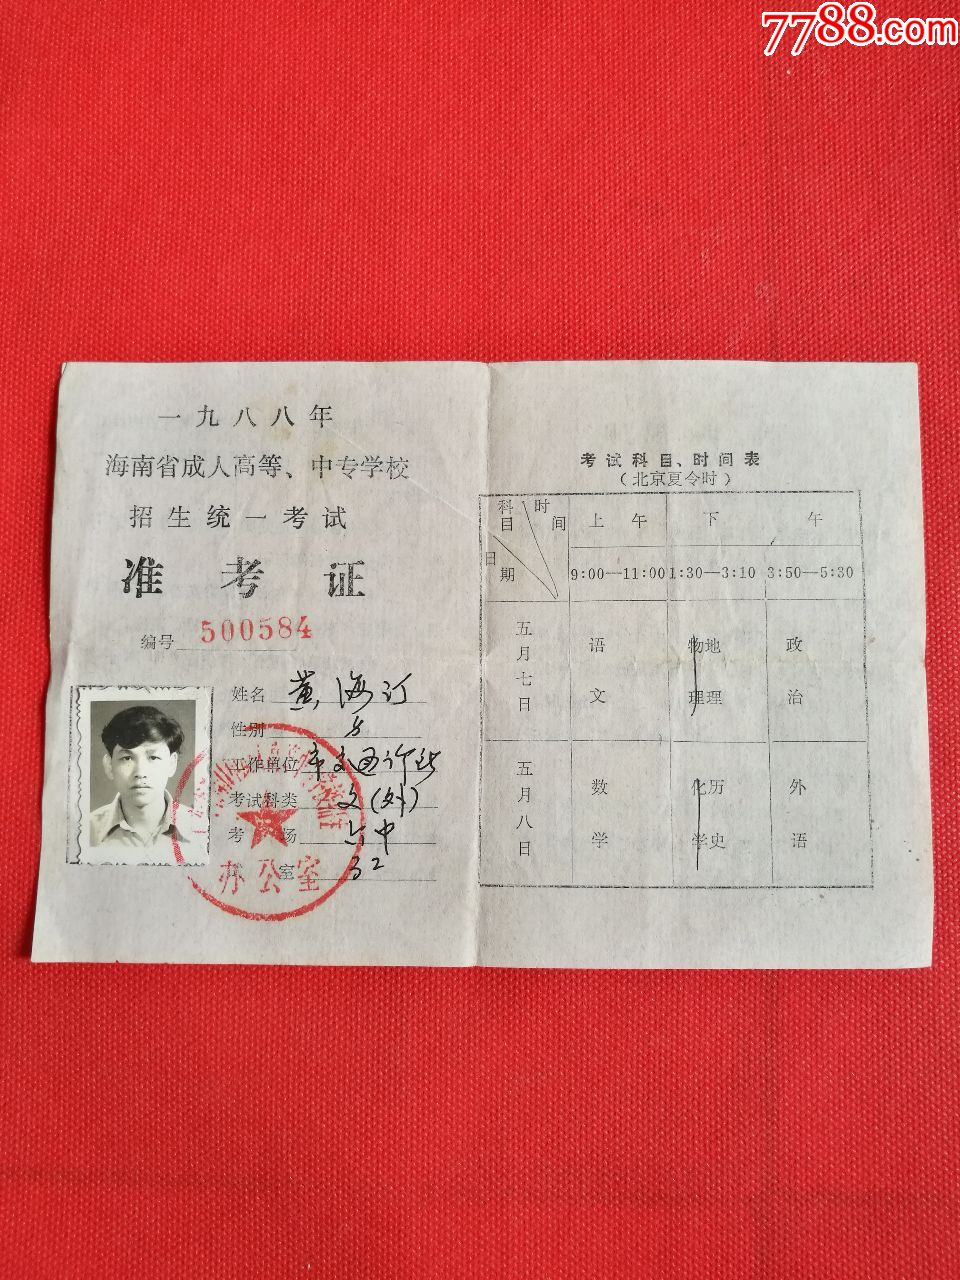 7788.com
一九八八年
海南省成人高等、中专学校
招生统一考试
准考证
编号 500584
姓名 黄海汀
性别
工作单位 市交通
考试科类 文(外)
考 场 中
室 32
办公室
考试科目、时间表
(北京夏令时)
科目 时间 日期 上午 下午
9:00—11:00 1:30—3:10 3:50—5:30
五月七日 语文 物理 地理 政治
五月八日 数学 化学 历史 外语